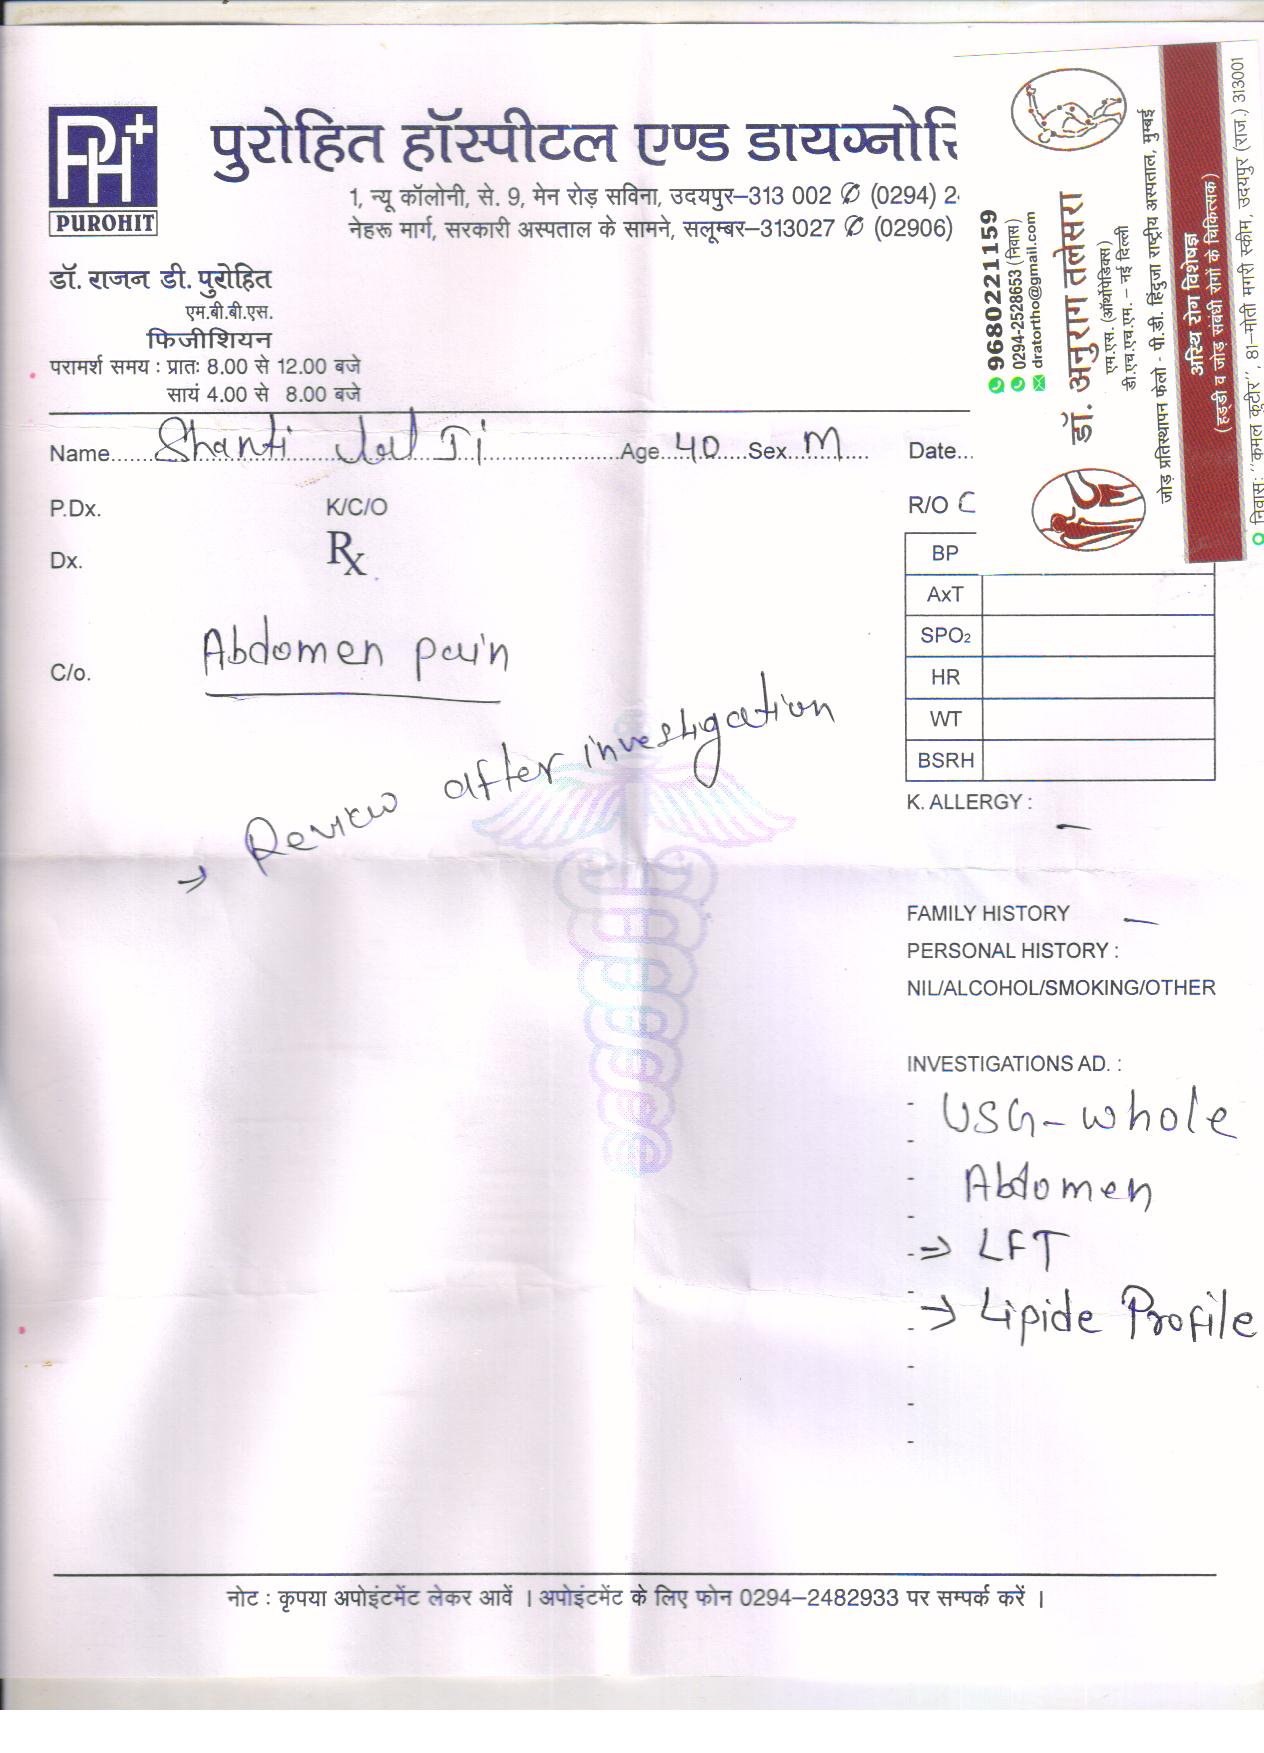 PH+
PUROHIT
पुरोहित हॉस्पीटल एण्ड डायग्नोसि
1, न्यू कॉलोनी, से. 9, मेन रोड़ सविना, उदयपुर–313 002 ✆ (0294) 2
नेहरू मार्ग, सरकारी अस्पताल के सामने, सलूम्बर–313027 ✆ (02906)
डॉ. राजन डी. पुरोहित
एम.बी.बी.एस.
फिजीशियन
परामर्श समय : प्रातः 8.00 से 12.00 बजे
सायं 4.00 से 8.00 बजे
9680221159
0294-2528653 (निवास)
dratortho@gmail.com
डॉ. अनुराग तलेसरा
एम.एस. (ऑर्थोपेडिक्स)
डी.एच.एच.एम. – नई दिल्ली
जोड़ प्रतिस्थापन फेलो - पी.डी. हिंदुजा राष्ट्रीय अस्पताल, मुम्बई
अस्थि रोग विशेषज्ञ
(हड्डी व जोड़ संबंधी रोगों के चिकित्सक)
निवास: "कमल कुटीर", 81–मोती मगरी स्कीम, उदयपुर (राज.) 313001
Name Shanti Lal Ji Age 40 Sex M Date...
P.Dx. K/C/O R/O C
Dx. Rx
BP
AxT
SPO2
HR
WT
BSRH
C/o. Abdomen pain
→ Review after investigation
K. ALLERGY : –
FAMILY HISTORY –
PERSONAL HISTORY :
NIL/ALCOHOL/SMOKING/OTHER
INVESTIGATIONS AD. :
- USG-whole
Abdomen
→ LFT
→ Lipide Profile
नोट : कृपया अपोइंटमेंट लेकर आवें । अपोइंटमेंट के लिए फोन 0294–2482933 पर सम्पर्क करें ।